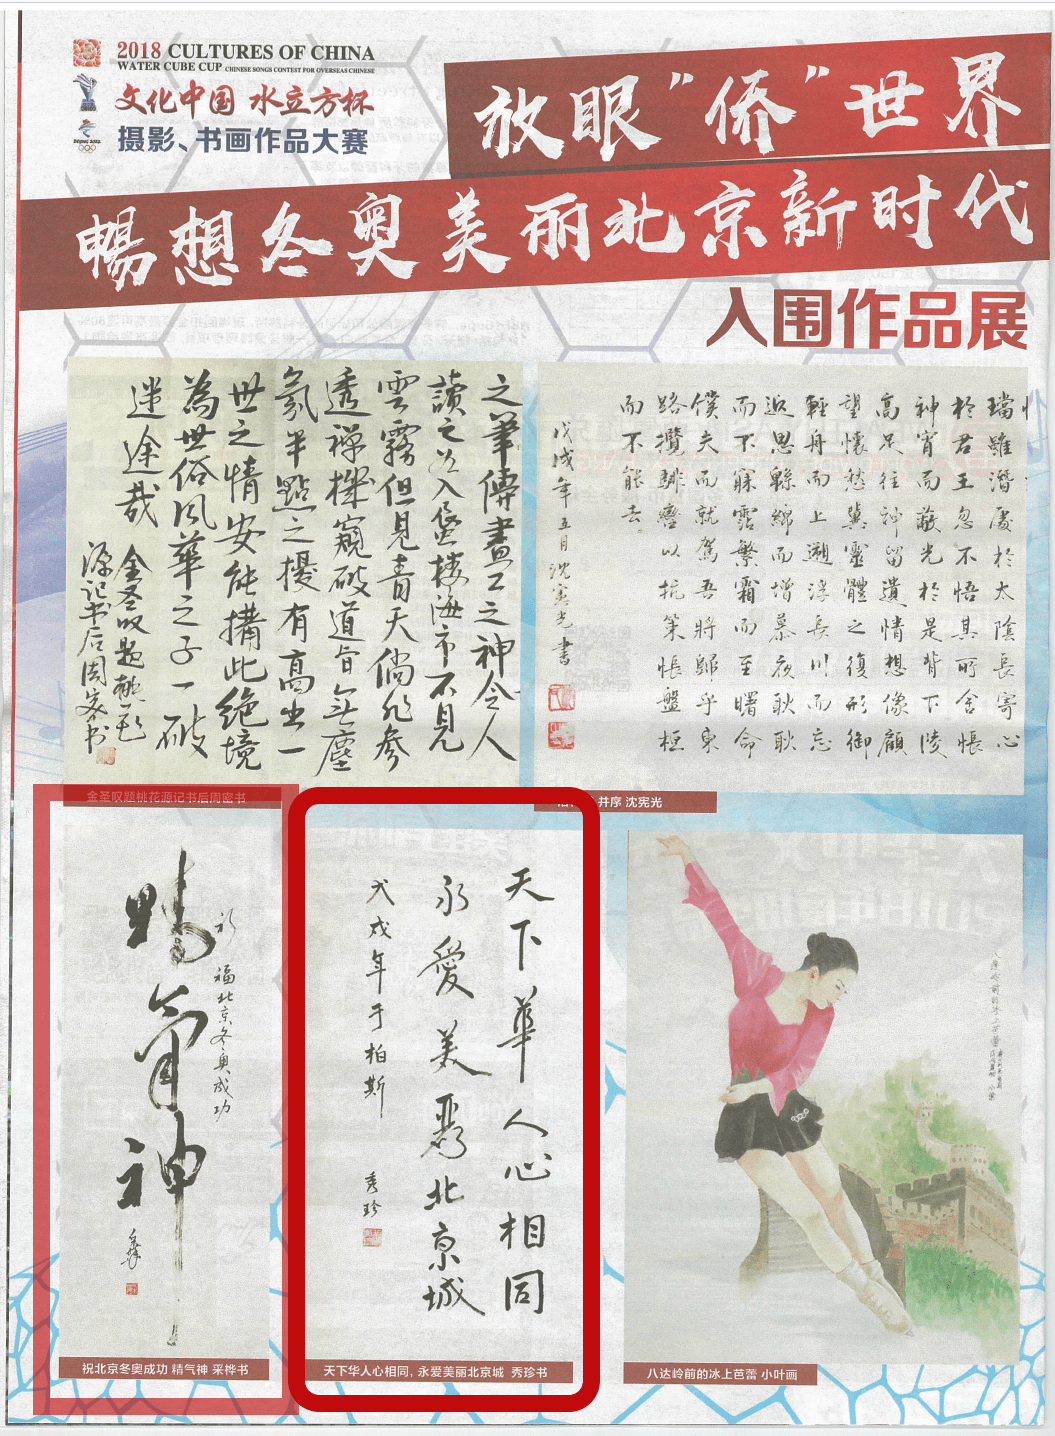 2018 CULTURES OF CHINA
WATER CUBE CUP CHINESE SONGS CONTEST FOR OVERSEAS CHINESE
文化中国 水立方杯
摄影、书画作品大赛
BEIJING 2022
放眼"侨"世界
暢想冬奥美丽北京新时代
入围作品展
璫雖潛處於太陰長寄心
於君王忽不悟其所舍悵
神宵而蔽光於是背下陵
高足往神留遺情想像顧
望懷愁冀靈體之復形御
輕舟而上遡浮長川而忘
返思緜綿而增慕夜耿耿
而不寐霑繁霜而至曙命
僕夫而就駕吾將歸乎東
路攬騑轡以抗策悵盤桓
而不能去
戊戌年五月沈憲光書
之筆傳畫工之神令人
讀之如入蜃楼海市不見
雲霧但見青天倘非参
透禅機窺破道旨無塵
氛半點之擾有高出一
世之情安能搆此绝境
為世俗风華之子一破
迷途哉
金圣叹题桃花
源记书后周密书
金圣叹题桃花源记书后周密书
并序 沈宪光
祈福北京冬奥成功
精氣神
祝北京冬奥成功 精气神 采桦书
天下華人心相同
永愛美麗北京城
戊戌年于柏斯
秀珍
天下华人心相同，永爱美丽北京城 秀珍书
八达岭前的冰上芭蕾 小叶画